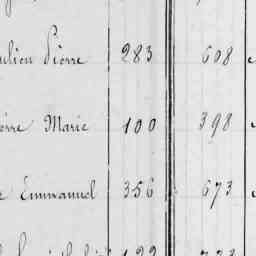 ulien Pierre 283 608
erre Marie 100 398
e Emmanuel 356 673